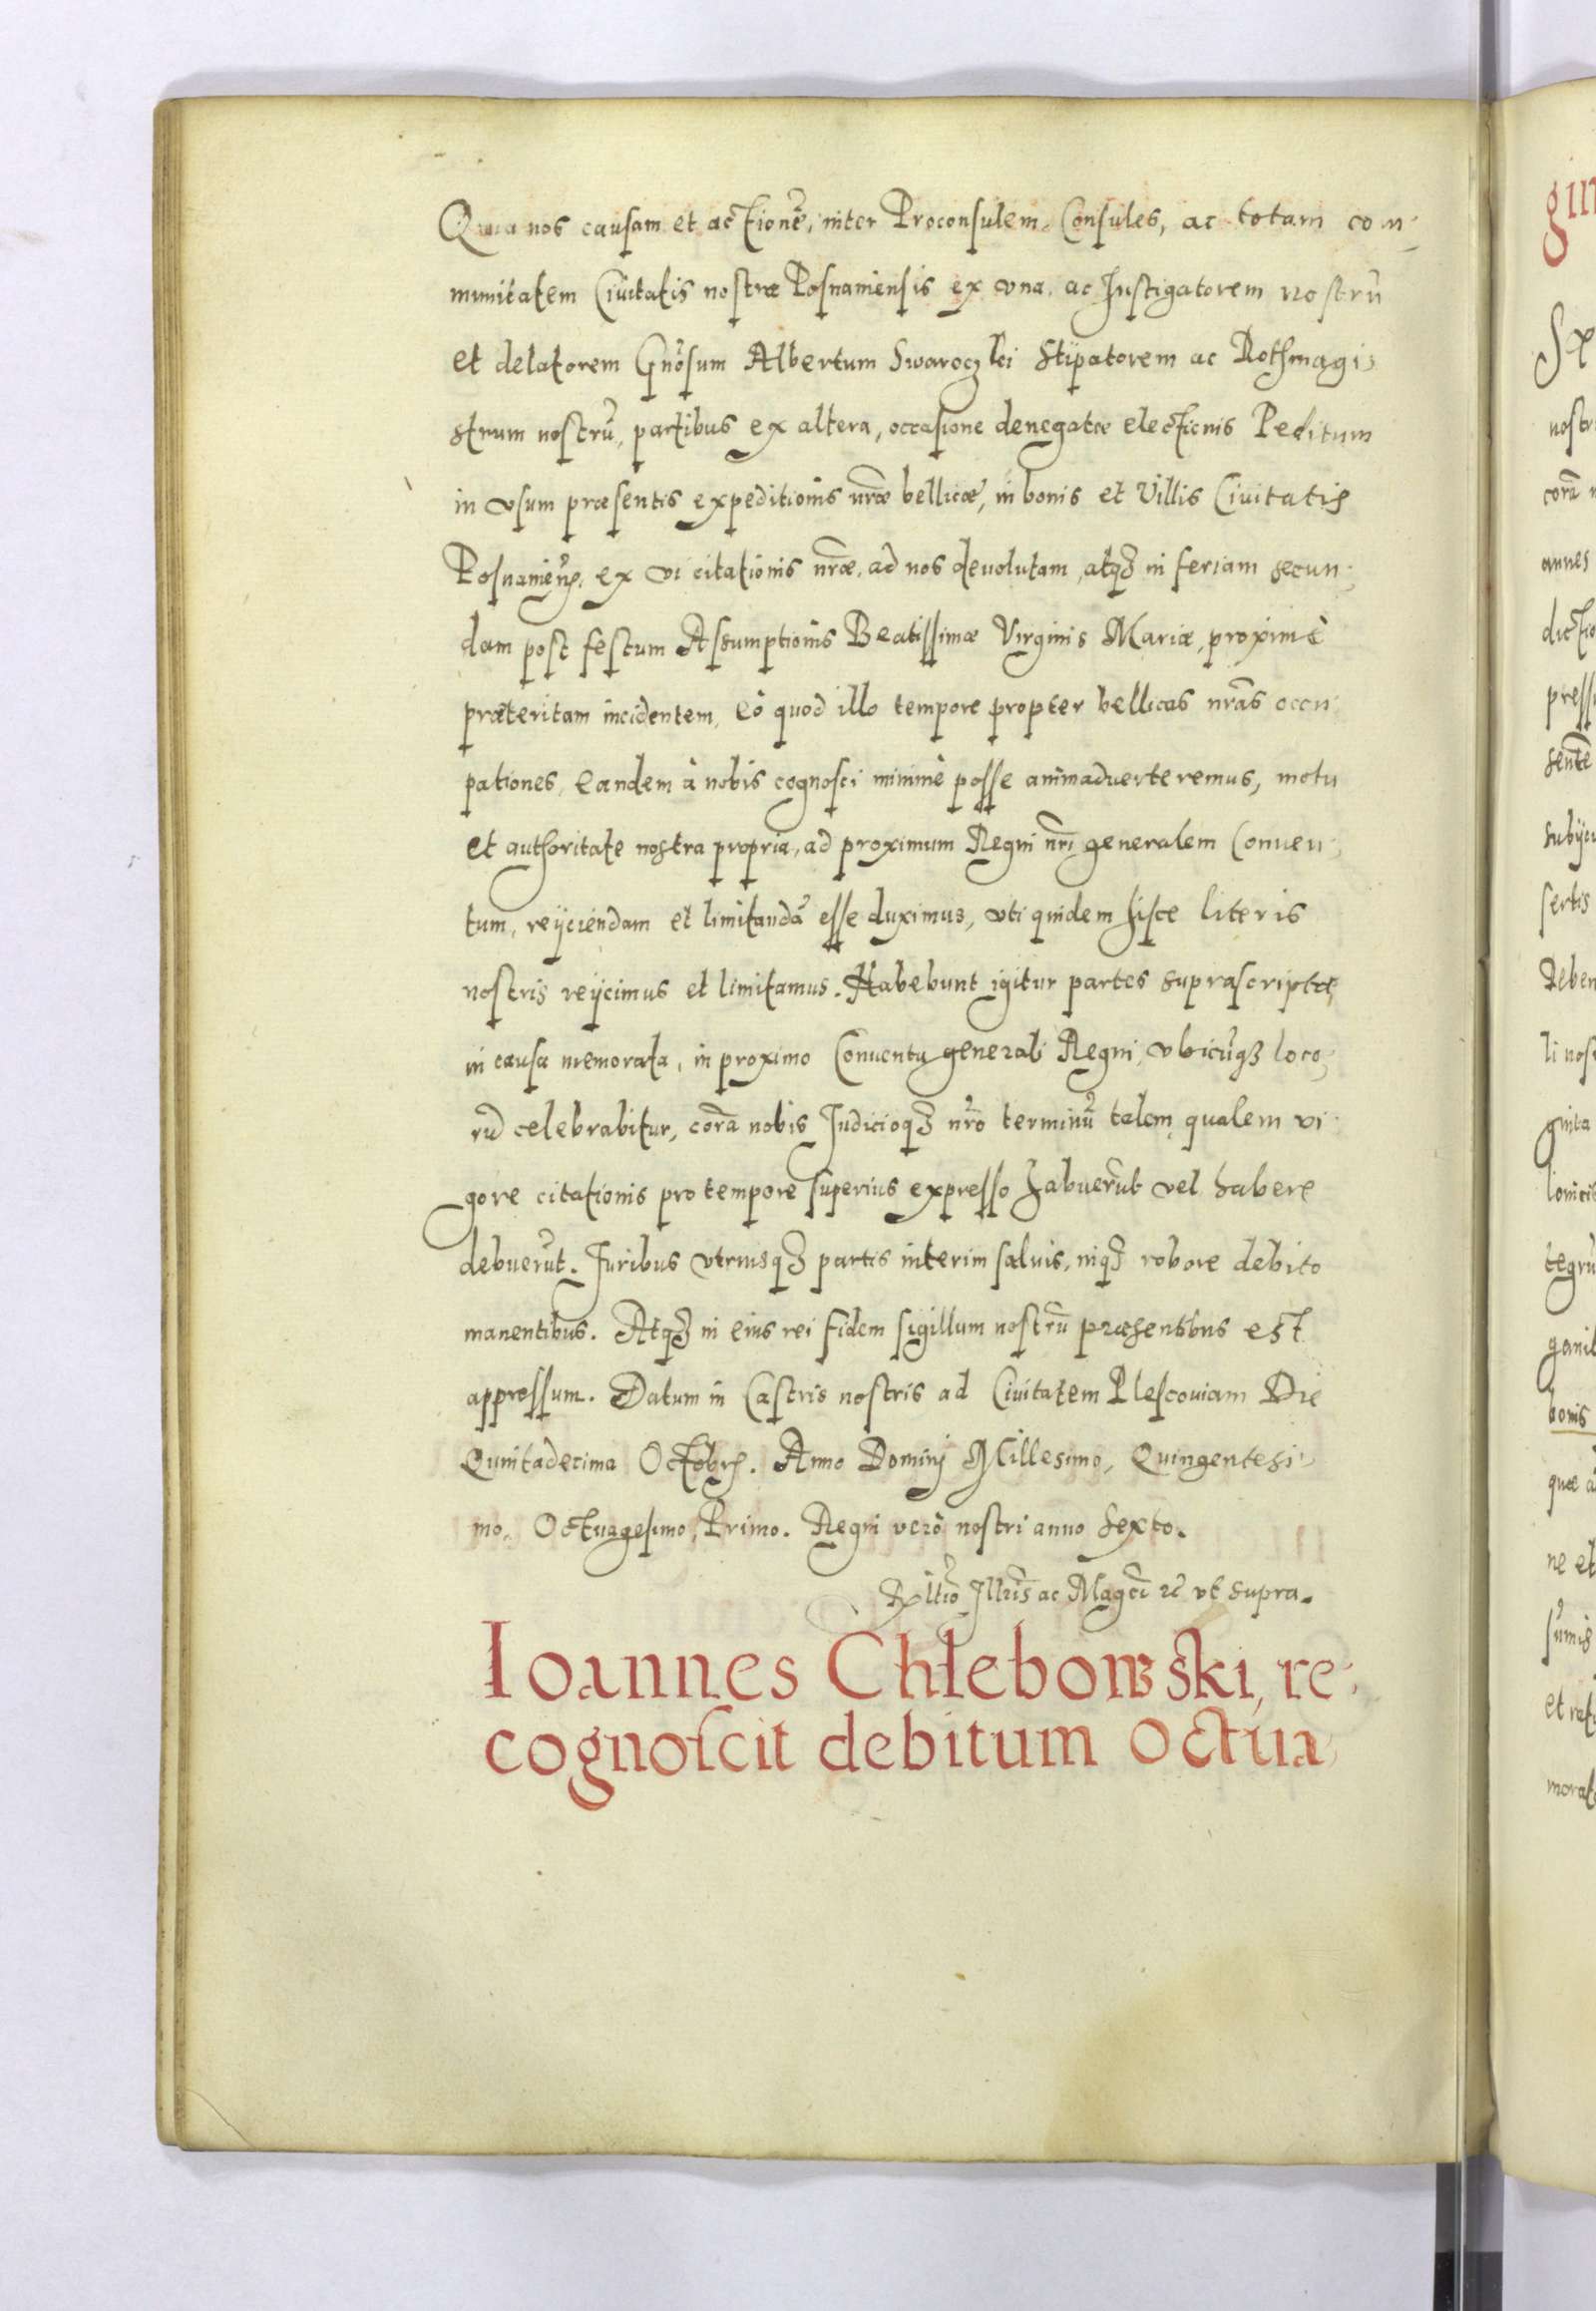 Quia nos causam et actionẽ, inter Proconsulem, Consules, ac totam com-
munitatem Ciuitatis nostræ Posnaniensis ex vna, ac Instigatorem nostrũ
et delatorem Gñosum Albertum Swaroczki Stipatorem ac Rothmagi-
strum nostrũ, partibus ex altera, occasione denegatæ electionis Peditum
in vsum præsentis expeditionis nr̃æ bellicæ, in bonis et Villis Ciuitatis
Posnanieñ. ex vi citationis nr̃æ, ad nos deuolutam, atqꝫ in feriam secun-
dam post festum Assumptionis Beatissimæ Virginis Mariæ, proximè
præteritam incidentem, eò quod illo tempore propter bellicas nr̃as occu-
pationes, eandem à nobis cognosci minimè posse animaduerteremus, motu
et authoritate nostra propria, ad proximum Regni nr̃i generalem Conuen-
tum, reijciendam et limitandã esse duximus, vti quidem hisce literis
nostris reijcimus et limitamus. Habebunt igitur partes suprascriptæ,
in causa memorata, in proximo Conuentu generali Regni, vbicũqꝫ loco-
rũ celebrabitur, corã nobis Iudicioqꝫ nr̃o terminũ talem qualem vi-
gore citationis pro tempore superius expresso habuerũt vel habere
debuerũt. Iuribus vtriusqꝫ partis interim saluis, inqꝫ robore debito
manentibus. Atqꝫ in eius rei fidem sigillum nostrũ præsentibus est
appressum. Datum in Castris nostris ad Ciuitatem Plescouiam Die
Quintadecima Octobrꝭ. Anno Dominj Millesimo, Quingentesi-
mo, Octuagesimo, Primo. Regni verò nostri anno Sexto.
Rltio Illris ac Magci ꝛc̃ vt supra.
Ioannes Chlebowski, re-
cognoscit debitum octua
gin